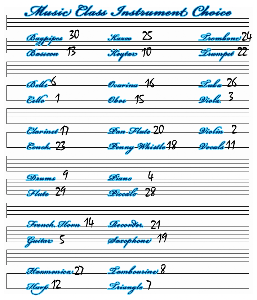 Music Class Instrument Choice
Bagpipes 30 Kazoo 25 Trombone 24
Bassoon 13 Keytar 10 Trumpet 22
Bells 6 Ocarina 16 Tuba 26
Cello 1 Oboe 15 Viola 3
Clarinet 17 Pan Flute 20 Violin 2
Conch 23 Penny Whistle 18 Vocals 11
Drums 9 Piano 4
Flute 29 Piccolo 28
French Horn 14 Recorder 21
Guitar 5 Saxophone 19
Harmonica 27 Tambourine 8
Harp 12 Triangle 7